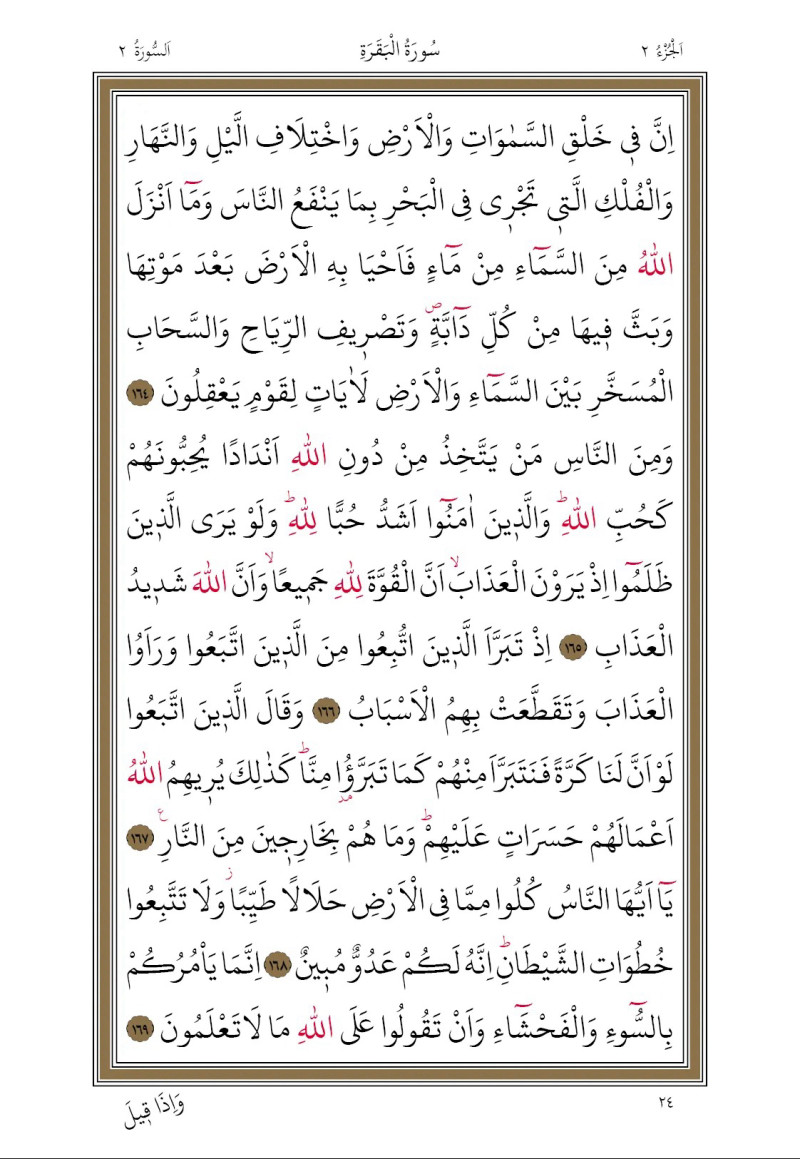 اَلْجُزْءُ ٢ سُورَةُ الْبَقَرَةِ اَلسُّورَةُ ٢
اِنَّ ف۪ي خَلْقِ السَّمٰوَاتِ وَالْاَرْضِ وَاخْتِلَافِ الَّيْلِ وَالنَّهَارِ
وَالْفُلْكِ الَّت۪ي تَجْر۪ي فِي الْبَحْرِ بِمَا يَنْفَعُ النَّاسَ وَمَٓا اَنْزَلَ
اللّٰهُ مِنَ السَّمَٓاءِ مِنْ مَٓاءٍ فَاَحْيَا بِهِ الْاَرْضَ بَعْدَ مَوْتِهَا
وَبَثَّ ف۪يهَا مِنْ كُلِّ دَٓابَّةٍۖ وَتَصْر۪يفِ الرِّيَاحِ وَالسَّحَابِ
الْمُسَخَّرِ بَيْنَ السَّمَٓاءِ وَالْاَرْضِ لَاٰيَاتٍ لِقَوْمٍ يَعْقِلُونَ ﴿١٦٤﴾
وَمِنَ النَّاسِ مَنْ يَتَّخِذُ مِنْ دُونِ اللّٰهِ اَنْدَادًا يُحِبُّونَهُمْ
كَحُبِّ اللّٰهِۜ وَالَّذ۪ينَ اٰمَنُٓوا اَشَدُّ حُبًّا لِلّٰهِۜ وَلَوْ يَرَى الَّذ۪ينَ
ظَلَمُٓوا اِذْ يَرَوْنَ الْعَذَابَۙ اَنَّ الْقُوَّةَ لِلّٰهِ جَم۪يعًاۙ وَاَنَّ اللّٰهَ شَد۪يدُ
الْعَذَابِ ﴿١٦٥﴾ اِذْ تَبَرَّاَ الَّذ۪ينَ اتُّبِعُوا مِنَ الَّذ۪ينَ اتَّبَعُوا وَرَاَوُا
الْعَذَابَ وَتَقَطَّعَتْ بِهِمُ الْاَسْبَابُ ﴿١٦٦﴾ وَقَالَ الَّذ۪ينَ اتَّبَعُوا
لَوْ اَنَّ لَنَا كَرَّةً فَنَتَبَرَّاَ مِنْهُمْ كَمَا تَبَرَّؤُ۫ا مِنَّاۜ كَذٰلِكَ يُر۪يهِمُ اللّٰهُ
اَعْمَالَهُمْ حَسَرَاتٍ عَلَيْهِمْۜ وَمَا هُمْ بِخَارِج۪ينَ مِنَ النَّارِ۟ ﴿١٦٧﴾
يَٓا اَيُّهَا النَّاسُ كُلُوا مِمَّا فِي الْاَرْضِ حَلَالًا طَيِّبًاۘ وَلَا تَتَّبِعُوا
خُطُوَاتِ الشَّيْطَانِۜ اِنَّهُ لَكُمْ عَدُوٌّ مُب۪ينٌ ﴿١٦٨﴾ اِنَّمَا يَاْمُرُكُمْ
بِالسُّٓوءِ وَالْفَحْشَٓاءِ وَاَنْ تَقُولُوا عَلَى اللّٰهِ مَا لَا تَعْلَمُونَ ﴿١٦٩﴾
٢٤ وَاِذَا ق۪يلَ